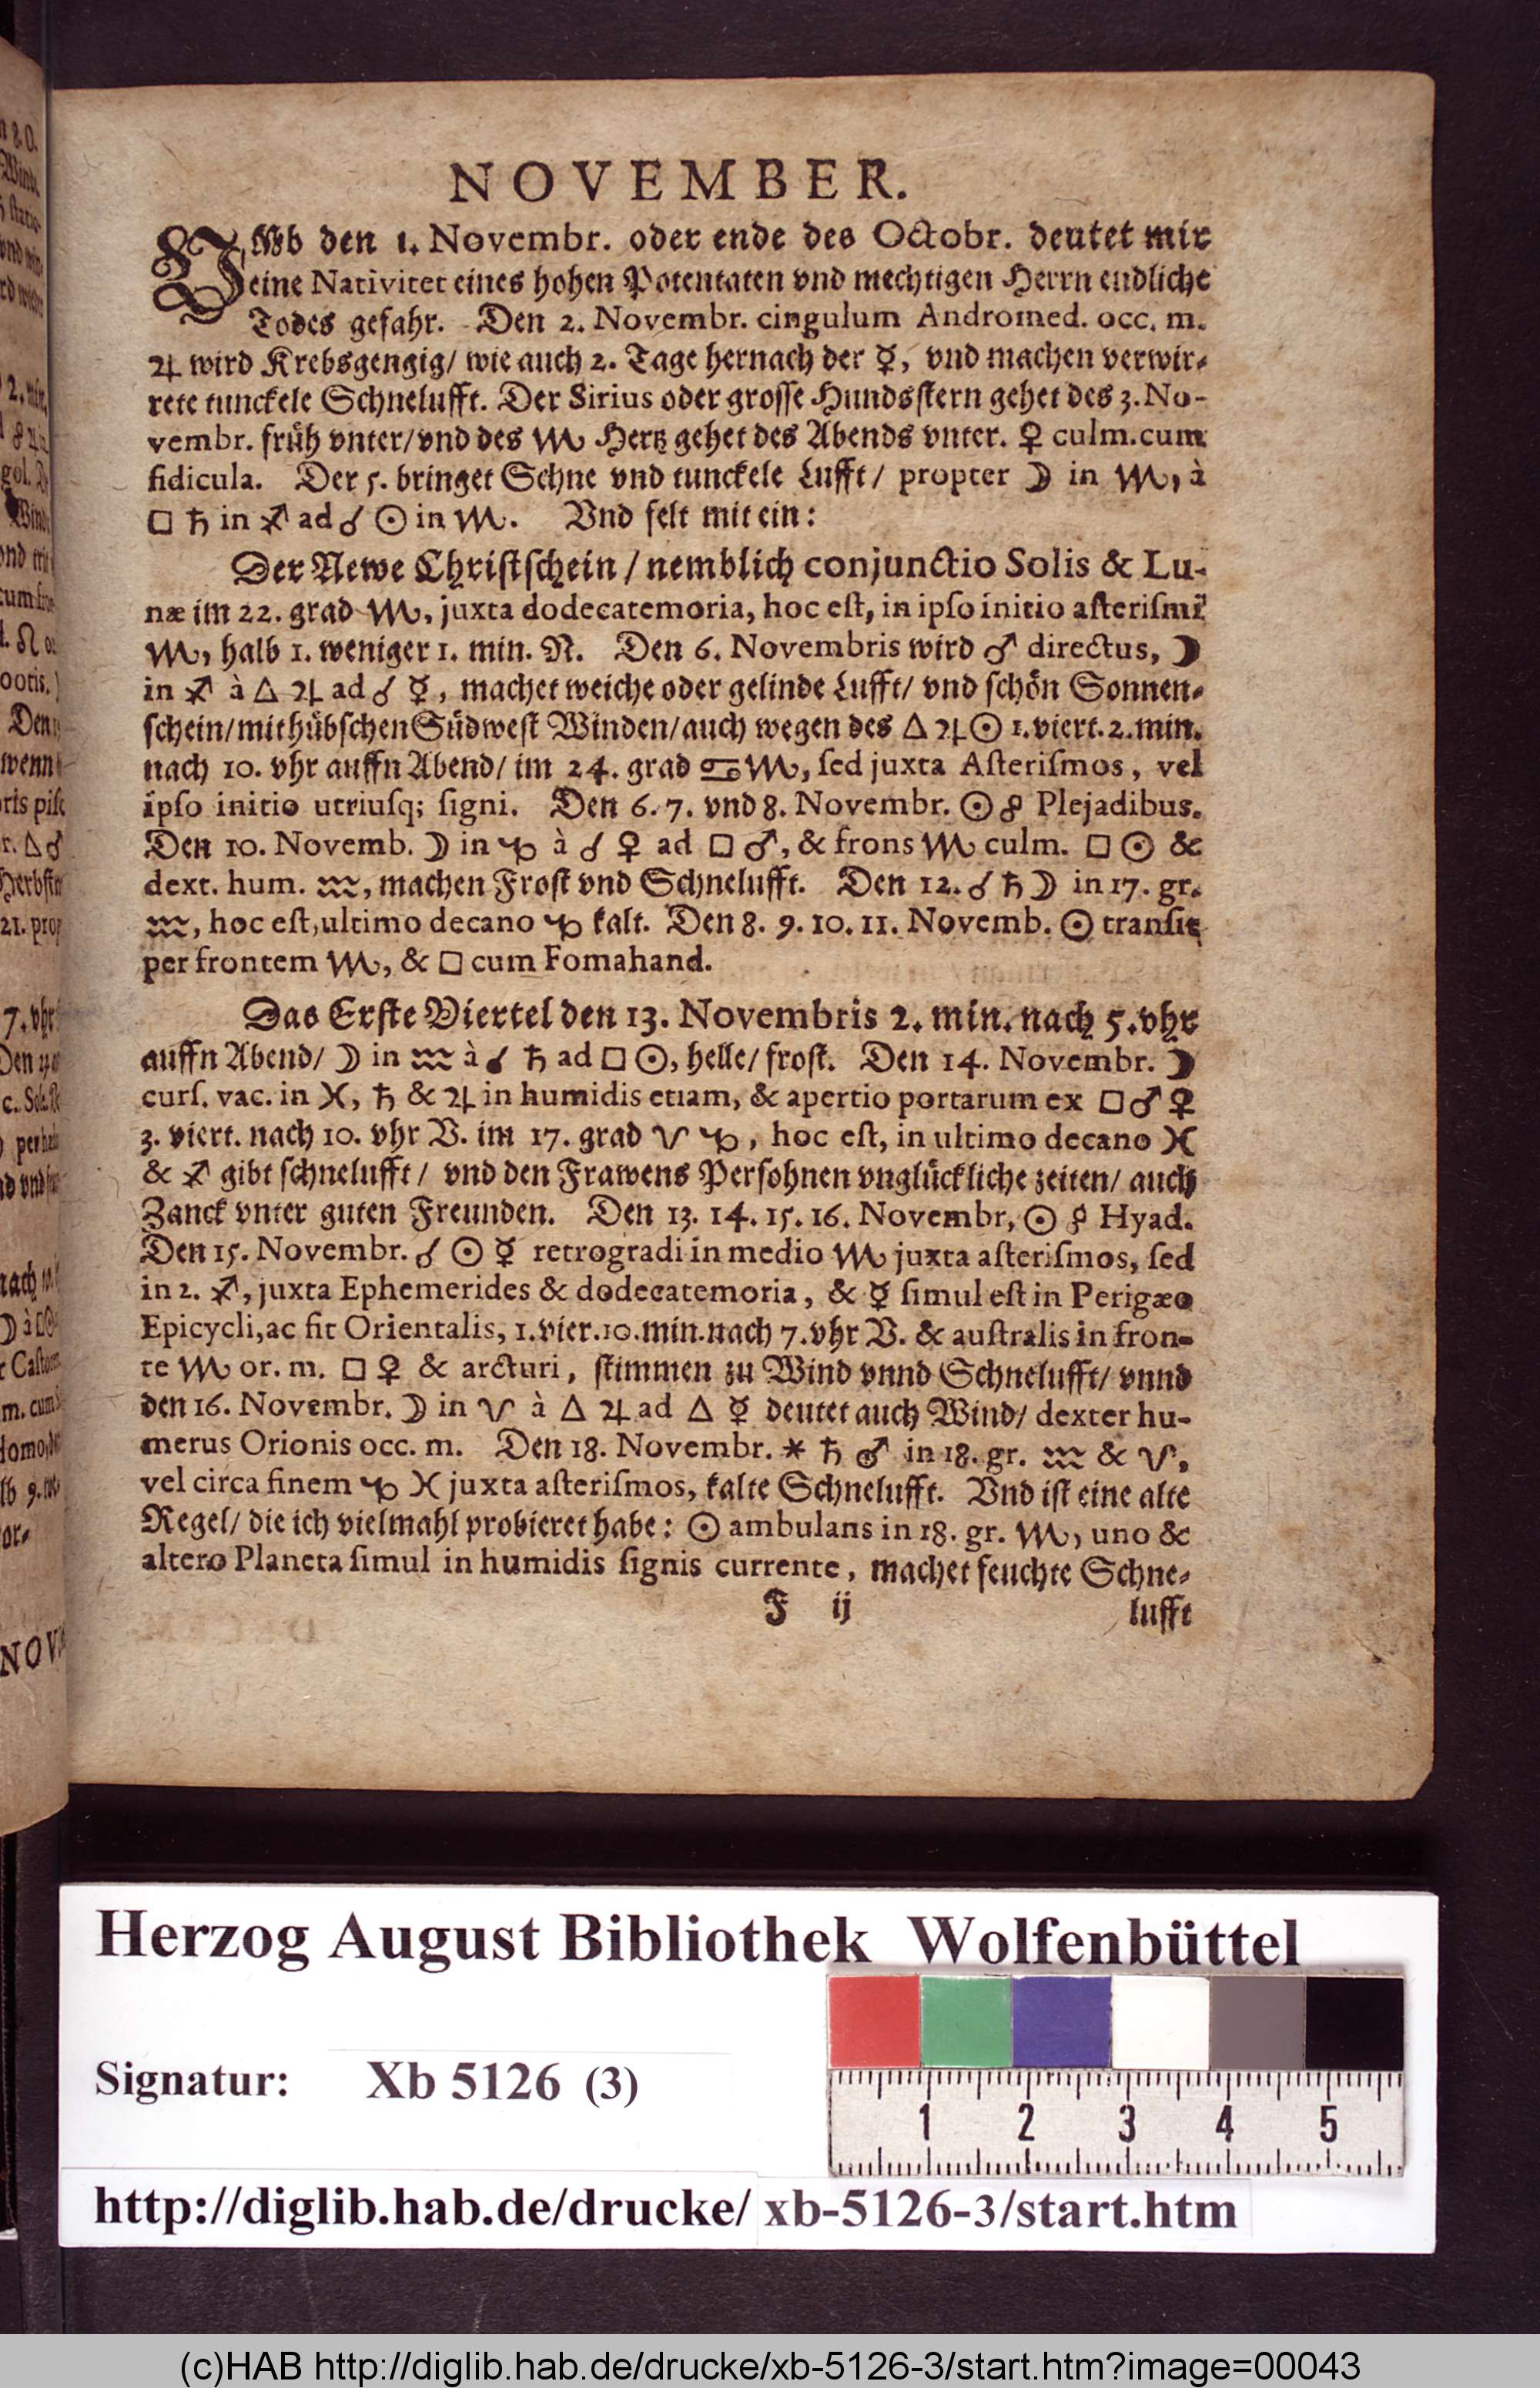 NOVEMBER.
Umb den 1. Novembr. oder ende des Octobr. deutet mir
eine Nativitet eines hohen Potentaten vnd mechtigen Herrn endliche
Todes gefahr. Den 2. Novembr. cingulum Andromed. occ. m.
♃ wird Krebsgengig/ wie auch 2. Tage hernach der ☿, vnd machen verwir-
rete tunckele Schnelufft. Der Sirius oder grosse Hundsstern gehet des 3. No-
vembr. früh vnter/ vnd des ♏ Hertz gehet des Abends vnter. ♀ culm. cum
fidicula. Der 5. bringet Schne vnd tunckele Lufft/ propter ☽ in ♏, à
□ ♄ in ♐ ad ☌ ☉ in ♏. Vnd felt mit ein:
Der Newe Christschein/ nemblich conjunctio Solis & Lu-
næ im 22. grad ♏, juxta dodecatemoria, hoc eſt, in ipſo initio aſteriſmi
♏, halb 1. weniger 1. min. N. Den 6. Novembris wird ♂ directus, ☽
in ♐ à △ ♃ ad ☌ ☿, machet weiche oder gelinde Lufft/ vnd schön Sonnen-
schein/ mit hübschen Südwest Winden/ auch wegen des △ ♃ ☉ 1. viert. 2. min.
nach 10. vhr auffn Abend/ im 24. grad ♋ ♏, ſed juxta Aſteriſmos, vel
ipſo initio utriuſq; ſigni. Den 6. 7. vnd 8. Novembr. ☉ ☍ Plejadibus.
Den 10. Novemb. ☽ in ♑ à ☌ ♀ ad □ ♂, & frons ♏ culm. □ ☉ &
dext. hum. ♒, machen Frost vnd Schnelufft. Den 12. ☌ ♄ ☽ in 17. gr.
♒, hoc eſt, ultimo decano ♑ kalt. Den 8. 9. 10. 11. Novemb. ☉ tranſit
per frontem ♏, & □ cum Fomahand.
Das Erste Viertel den 13. Novembris 2. min. nach 5. vhr
auffn Abend/ ☽ in ♒ à ☌ ♄ ad □ ☉, helle/ frost. Den 14. Novembr. ☽
curſ. vac. in ♓, ♄ & ♃ in humidis etiam, & apertio portarum ex □ ♂ ♀
3. viert. nach 10. vhr V. im 17. grad ♈ ♑, hoc eſt, in ultimo decano ♓
& ♐ gibt schnelufft/ vnd den Frawens Persohnen vnglückliche zeiten/ auch
Zanck vnter guten Freunden. Den 13. 14. 15. 16. Novembr, ☉ ☍ Hyad.
Den 15. Novembr. ☌ ☉ ☿ retrogradi in medio ♏ juxta aſteriſmos, ſed
in 2. ♐, juxta Ephemerides & dodecatemoria, & ☿ ſimul eſt in Perigæo
Epicycli, ac fit Orientalis, 1. vier. 10. min. nach 7. vhr V. & auſtralis in fron-
te ♏ or. m. □ ♀ & arcturi, stimmen zu Wind vnnd Schnelufft/ vnnd
den 16. Novembr. ☽ in ♈ à △ ♃ ad △ ☿ deutet auch Wind/ dexter hu-
merus Orionis occ. m. Den 18. Novembr. ⚹ ♄ ♂ in 18. gr. ♒ & ♈,
vel circa finem ♑ ♓ juxta aſteriſmos, kalte Schnelufft. Vnd ist eine alte
Regel/ die ich vielmahl probieret habe: ☉ ambulans in 18. gr. ♏, uno &
altero Planeta ſimul in humidis ſignis currente, machet feuchte Schne-
F ij lufft
Herzog August Bibliothek Wolfenbüttel
Signatur: Xb 5126 (3)
1 2 3 4 5
http://diglib.hab.de/drucke/ xb-5126-3/start.htm
(c)HAB http://diglib.hab.de/drucke/xb-5126-3/start.htm?image=00043